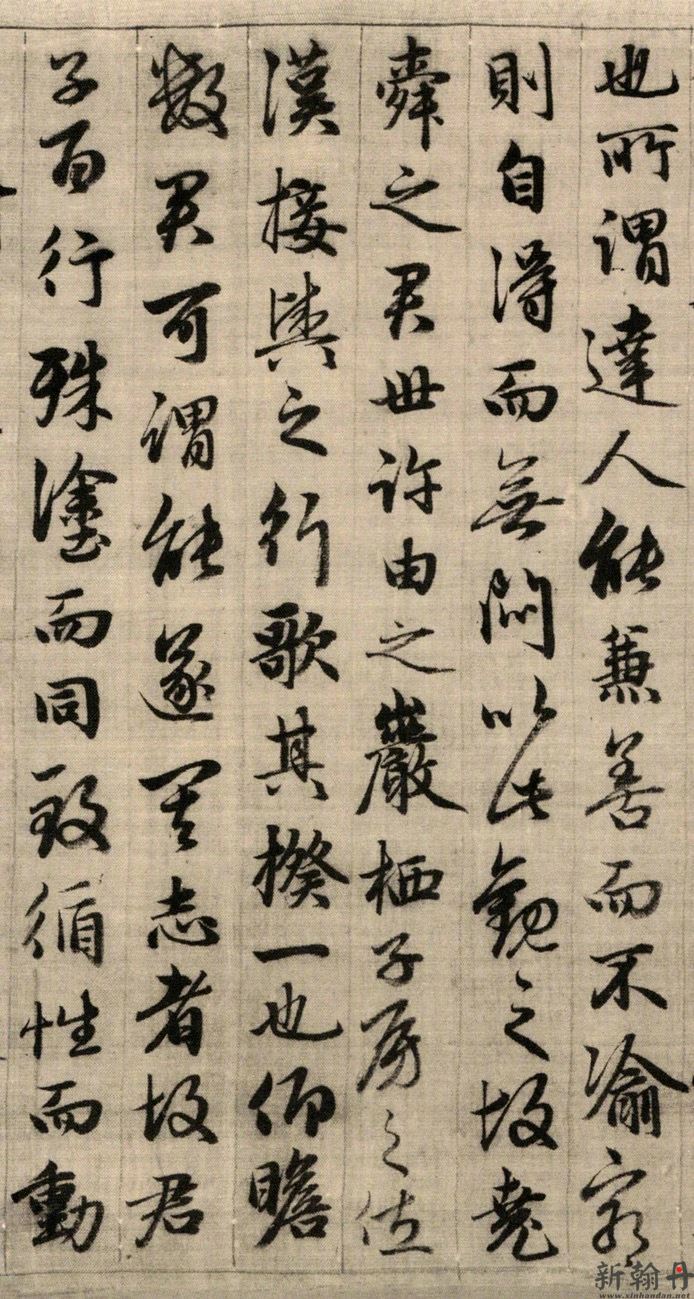 也所謂達人能兼善而不渝窮
則自得而無悶以此觀之故堯
舜之君世許由之巖栖子房之佐
漢接輿之行歌其揆一也仰瞻
數君可謂能遂其志者故君
子百行殊塗而同致循性而動
新翰丹
www.xinhandan.net